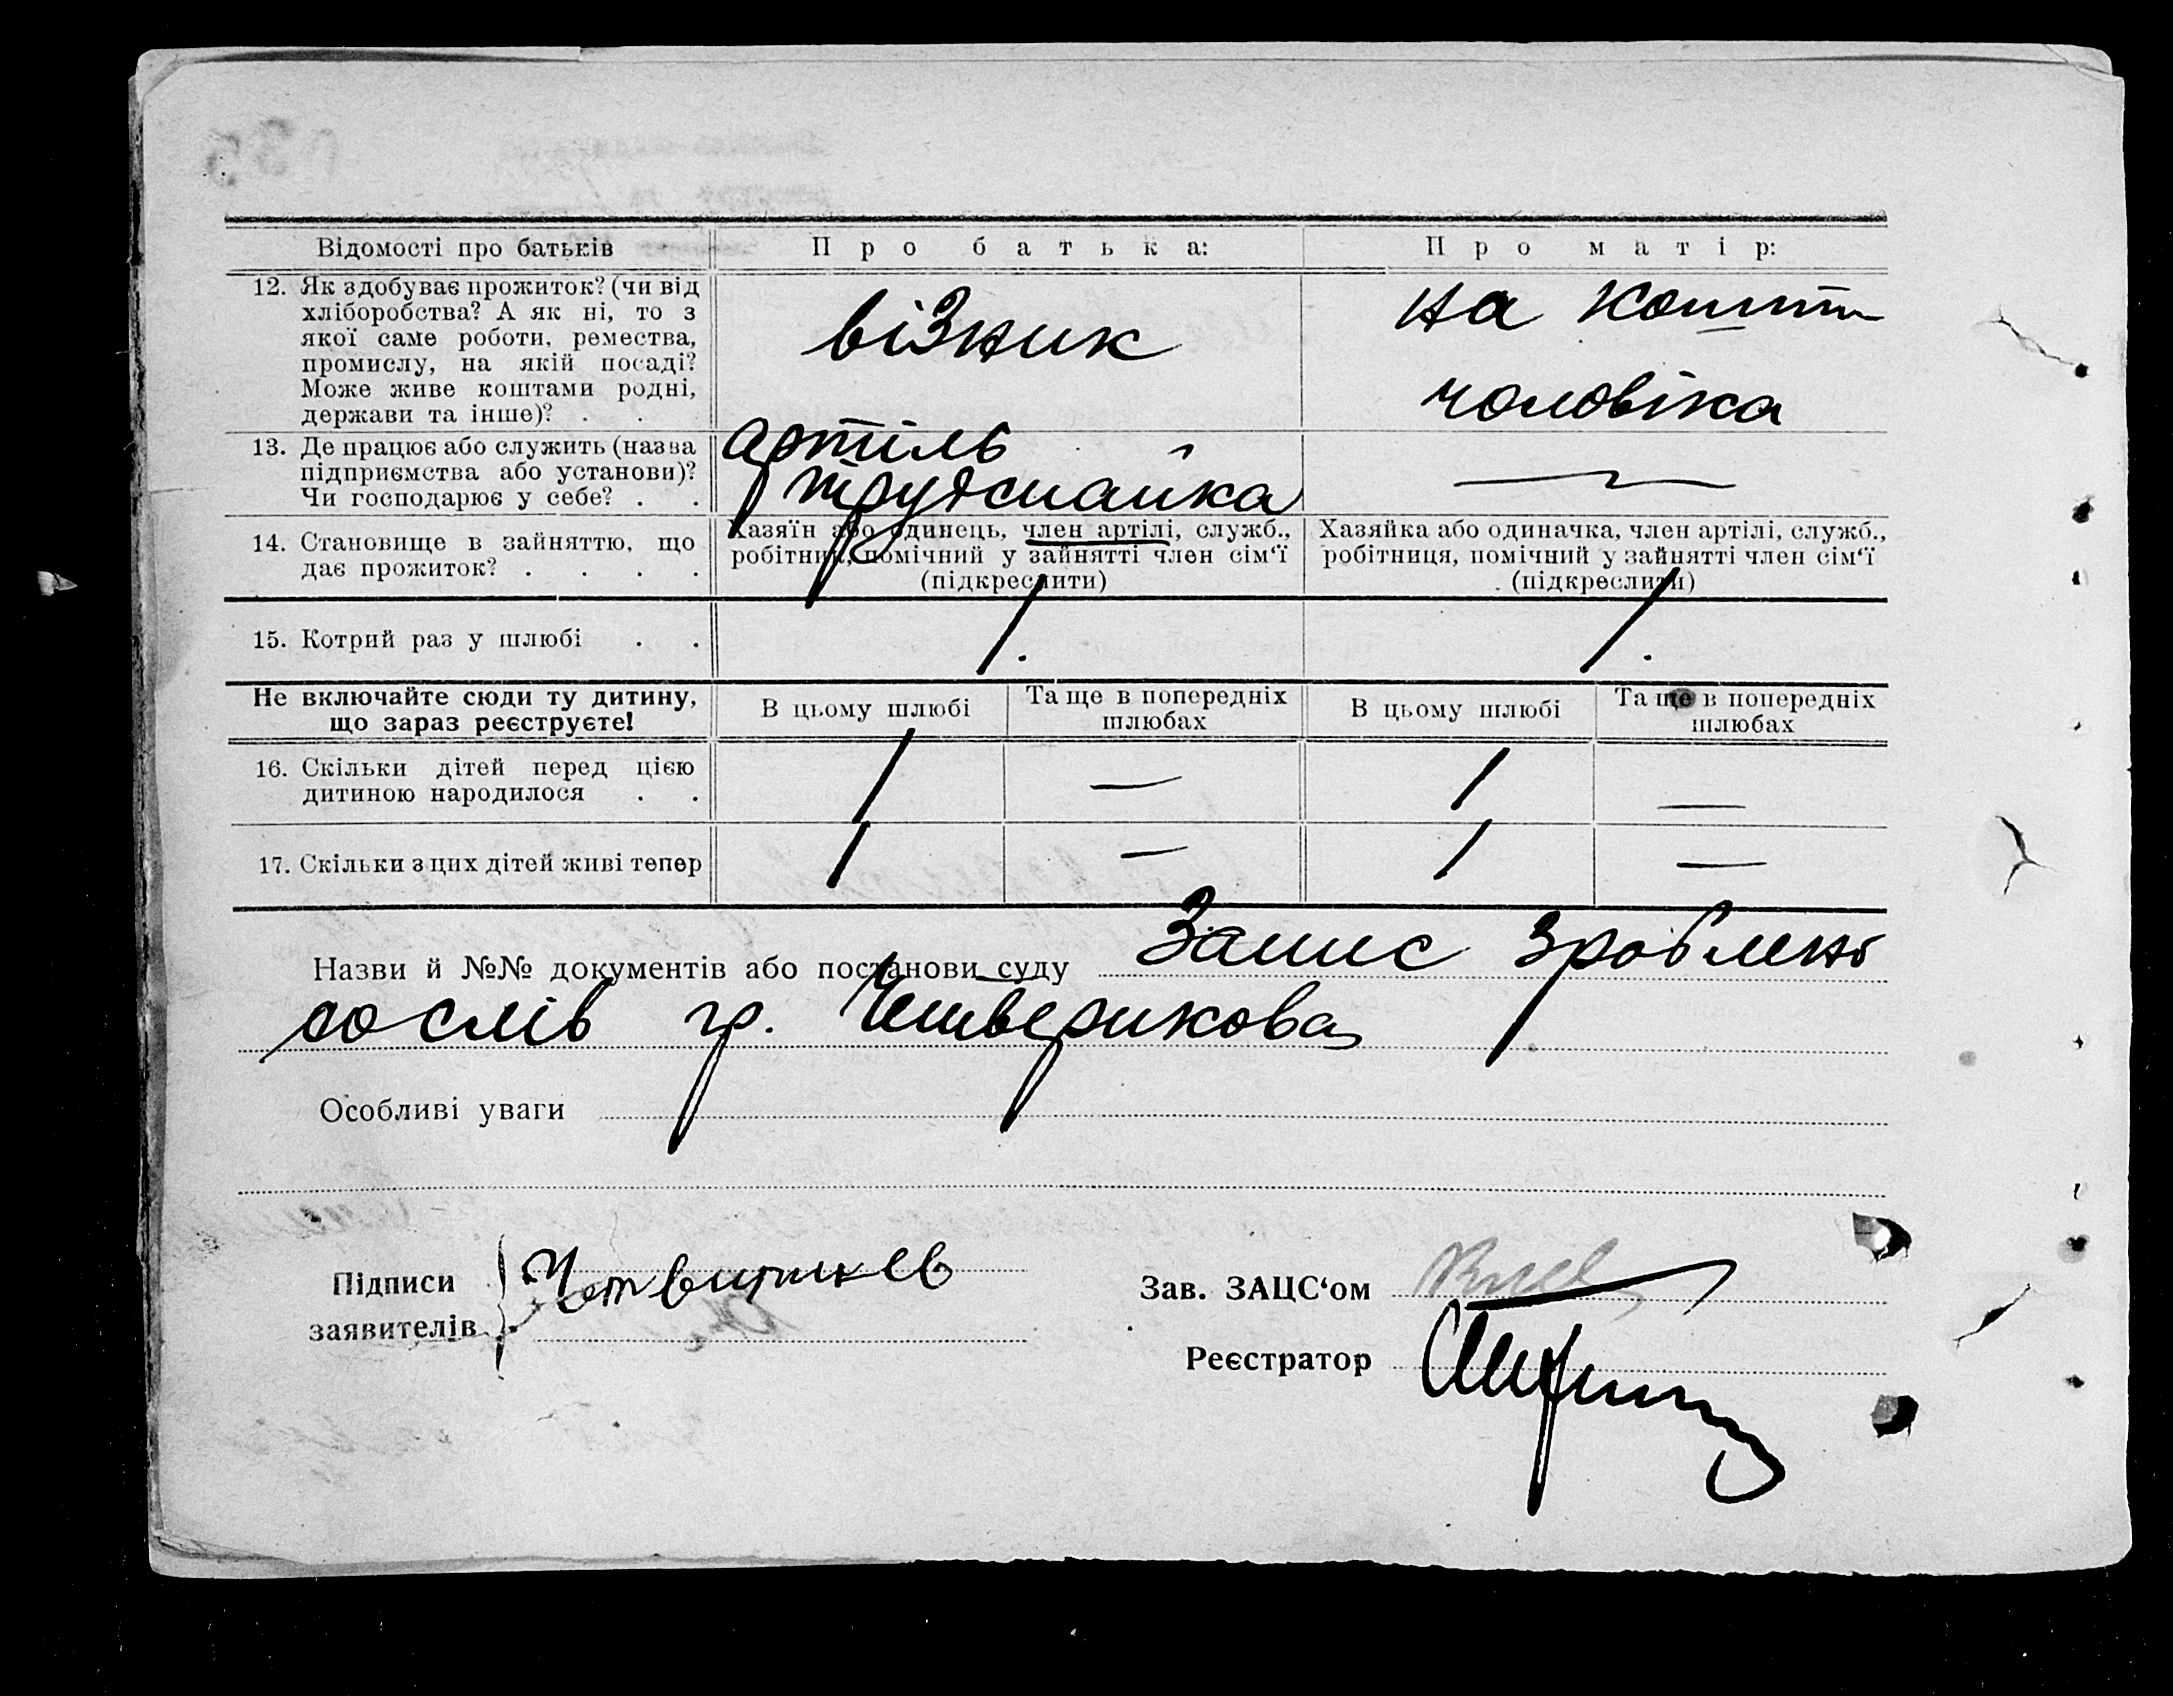 Відомості про батьків Про батька: Про матір:
12. Як здобуває прожиток? (чи від
хліборобства? А як ні, то з
якої саме роботи, ремества,
промислу, на якій посаді?
Може живе коштами родні,
держави та інше)? . . .
візник
на кошти
чоловіка
13. Де працює або служить (назва
підприємства або установи)?
Чи господарює у себе? . .
артіль
—
14. Становище в зайняттю, що
дає прожиток? . . . .
Хазяїн або одинець, член артілі, служб.,
робітник, помічний у зайнятті член сім‘ї
(підкреслити)
Хазяйка або одиначка, член артілі, служб.,
робітниця, помічний у зайнятті член сім‘ї
(підкреслити)
15. Котрий раз у шлюбі . . 1. 1.
Не включайте сюди ту дитину,
що зараз реєструєте!
В цьому шлюбі
Та ще в попередніх
шлюбах
В цьому шлюбі
Та ще в попередніх
шлюбах
16. Скільки дітей перед цією
дитиною народилося . .
1 — 1 —
17. Скільки з цих дітей живі тепер 1 — 1 —
Назви й №№ документів або постанови суду Запис зроблено
со слів гр. Четверикова
Особливі уваги
Підписи
заявителів
Зав. ЗАЦС‘ом
Реєстратор